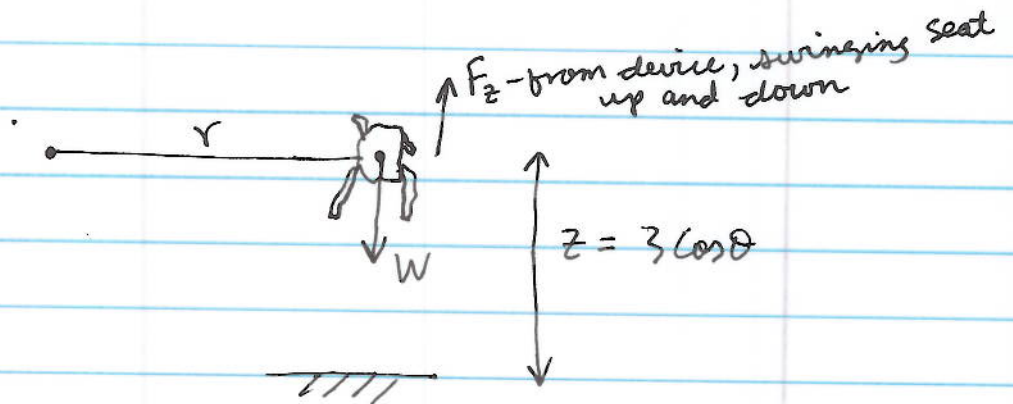 F_z - from device, swinging seat
up and down
r
W
z = 3 Cosθ